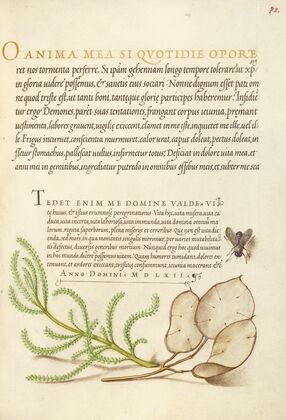 72.
O ANIMA MEA SI QVOTIDIE OPORE
ret nos tormenta perferre. Si ipsam gehennam longo tempore tolerare, ut xpm
in gloria videre possemus, & sanctis eius sociari. Nonne dignum esset pati om
ne quod triste est, ut tanti boni, tantaeque gloriae participes haberemur. Insidie
tur ergo Demones, paret suas tentationes, frangant corpus ieiunia, premant
vestimenta, labores gravent, vigiliae exiccent, clamet in me iste, inquietet me ille, vel il
le. Frigus incurvet, conscientia murmuret, calor urat, caput doleat, pectus doleat, in
fletur stomachus, pallescat vultus, infirmetur totus; Deficiat in dolore vita mea, et
anni mei in gemitibus, ingrediatur putredo in omnibus ossibus meis, et subter me sca
TEDET ENIM ME DOMINE VALDE, VI
tae huius, & istius erumnosae peregrinationis. Vita haec, vita misera, vita ca
duca, incerta, vita laboriosa, vita immunda, vita domina
rum, regina superborum, plena miseriis et erroribus. Quae non est vita di
cenda, sed mors, in qua momentis singulis morimur, per varios mutabilita
tis defectus, diversis generibus mortium. Nunquid ergo hoc quod vivimus
in hoc mundo, dicere possumus vitam? Quam humores tumidant, dolores ex
tenuant, et ardores exiccant,
ANNO DOMINI M D LXII